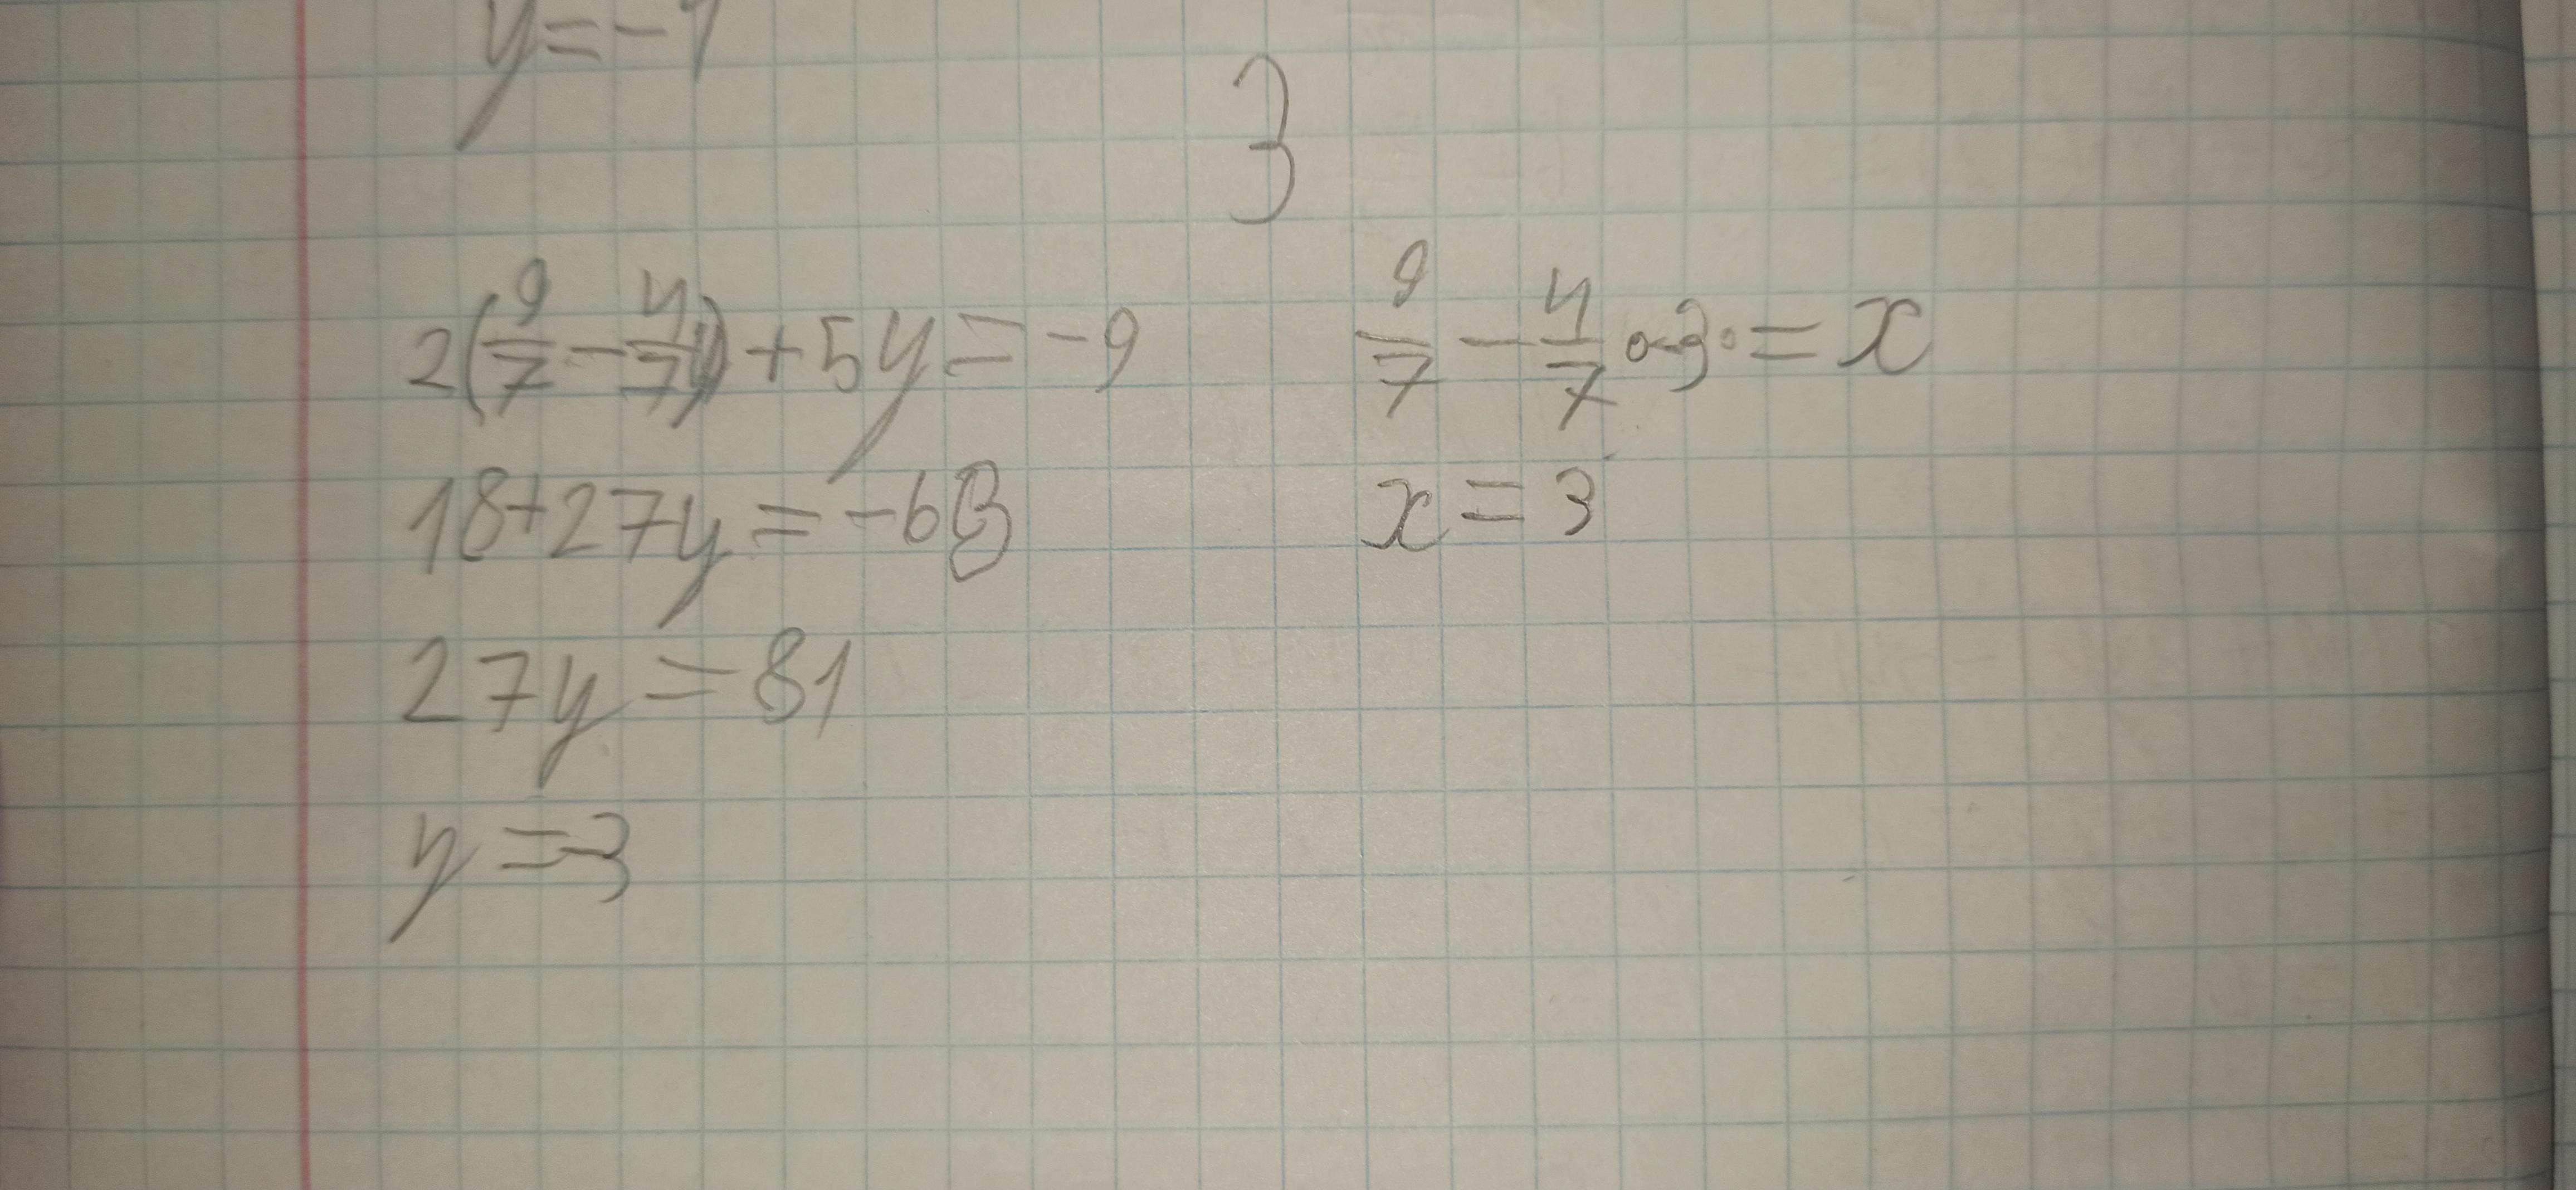 y=-1
3
2(9/7-4/7y)+5y=-9
18+27y=-63
27y=81
y=-3
9/7-4/7·-3=x
x=3